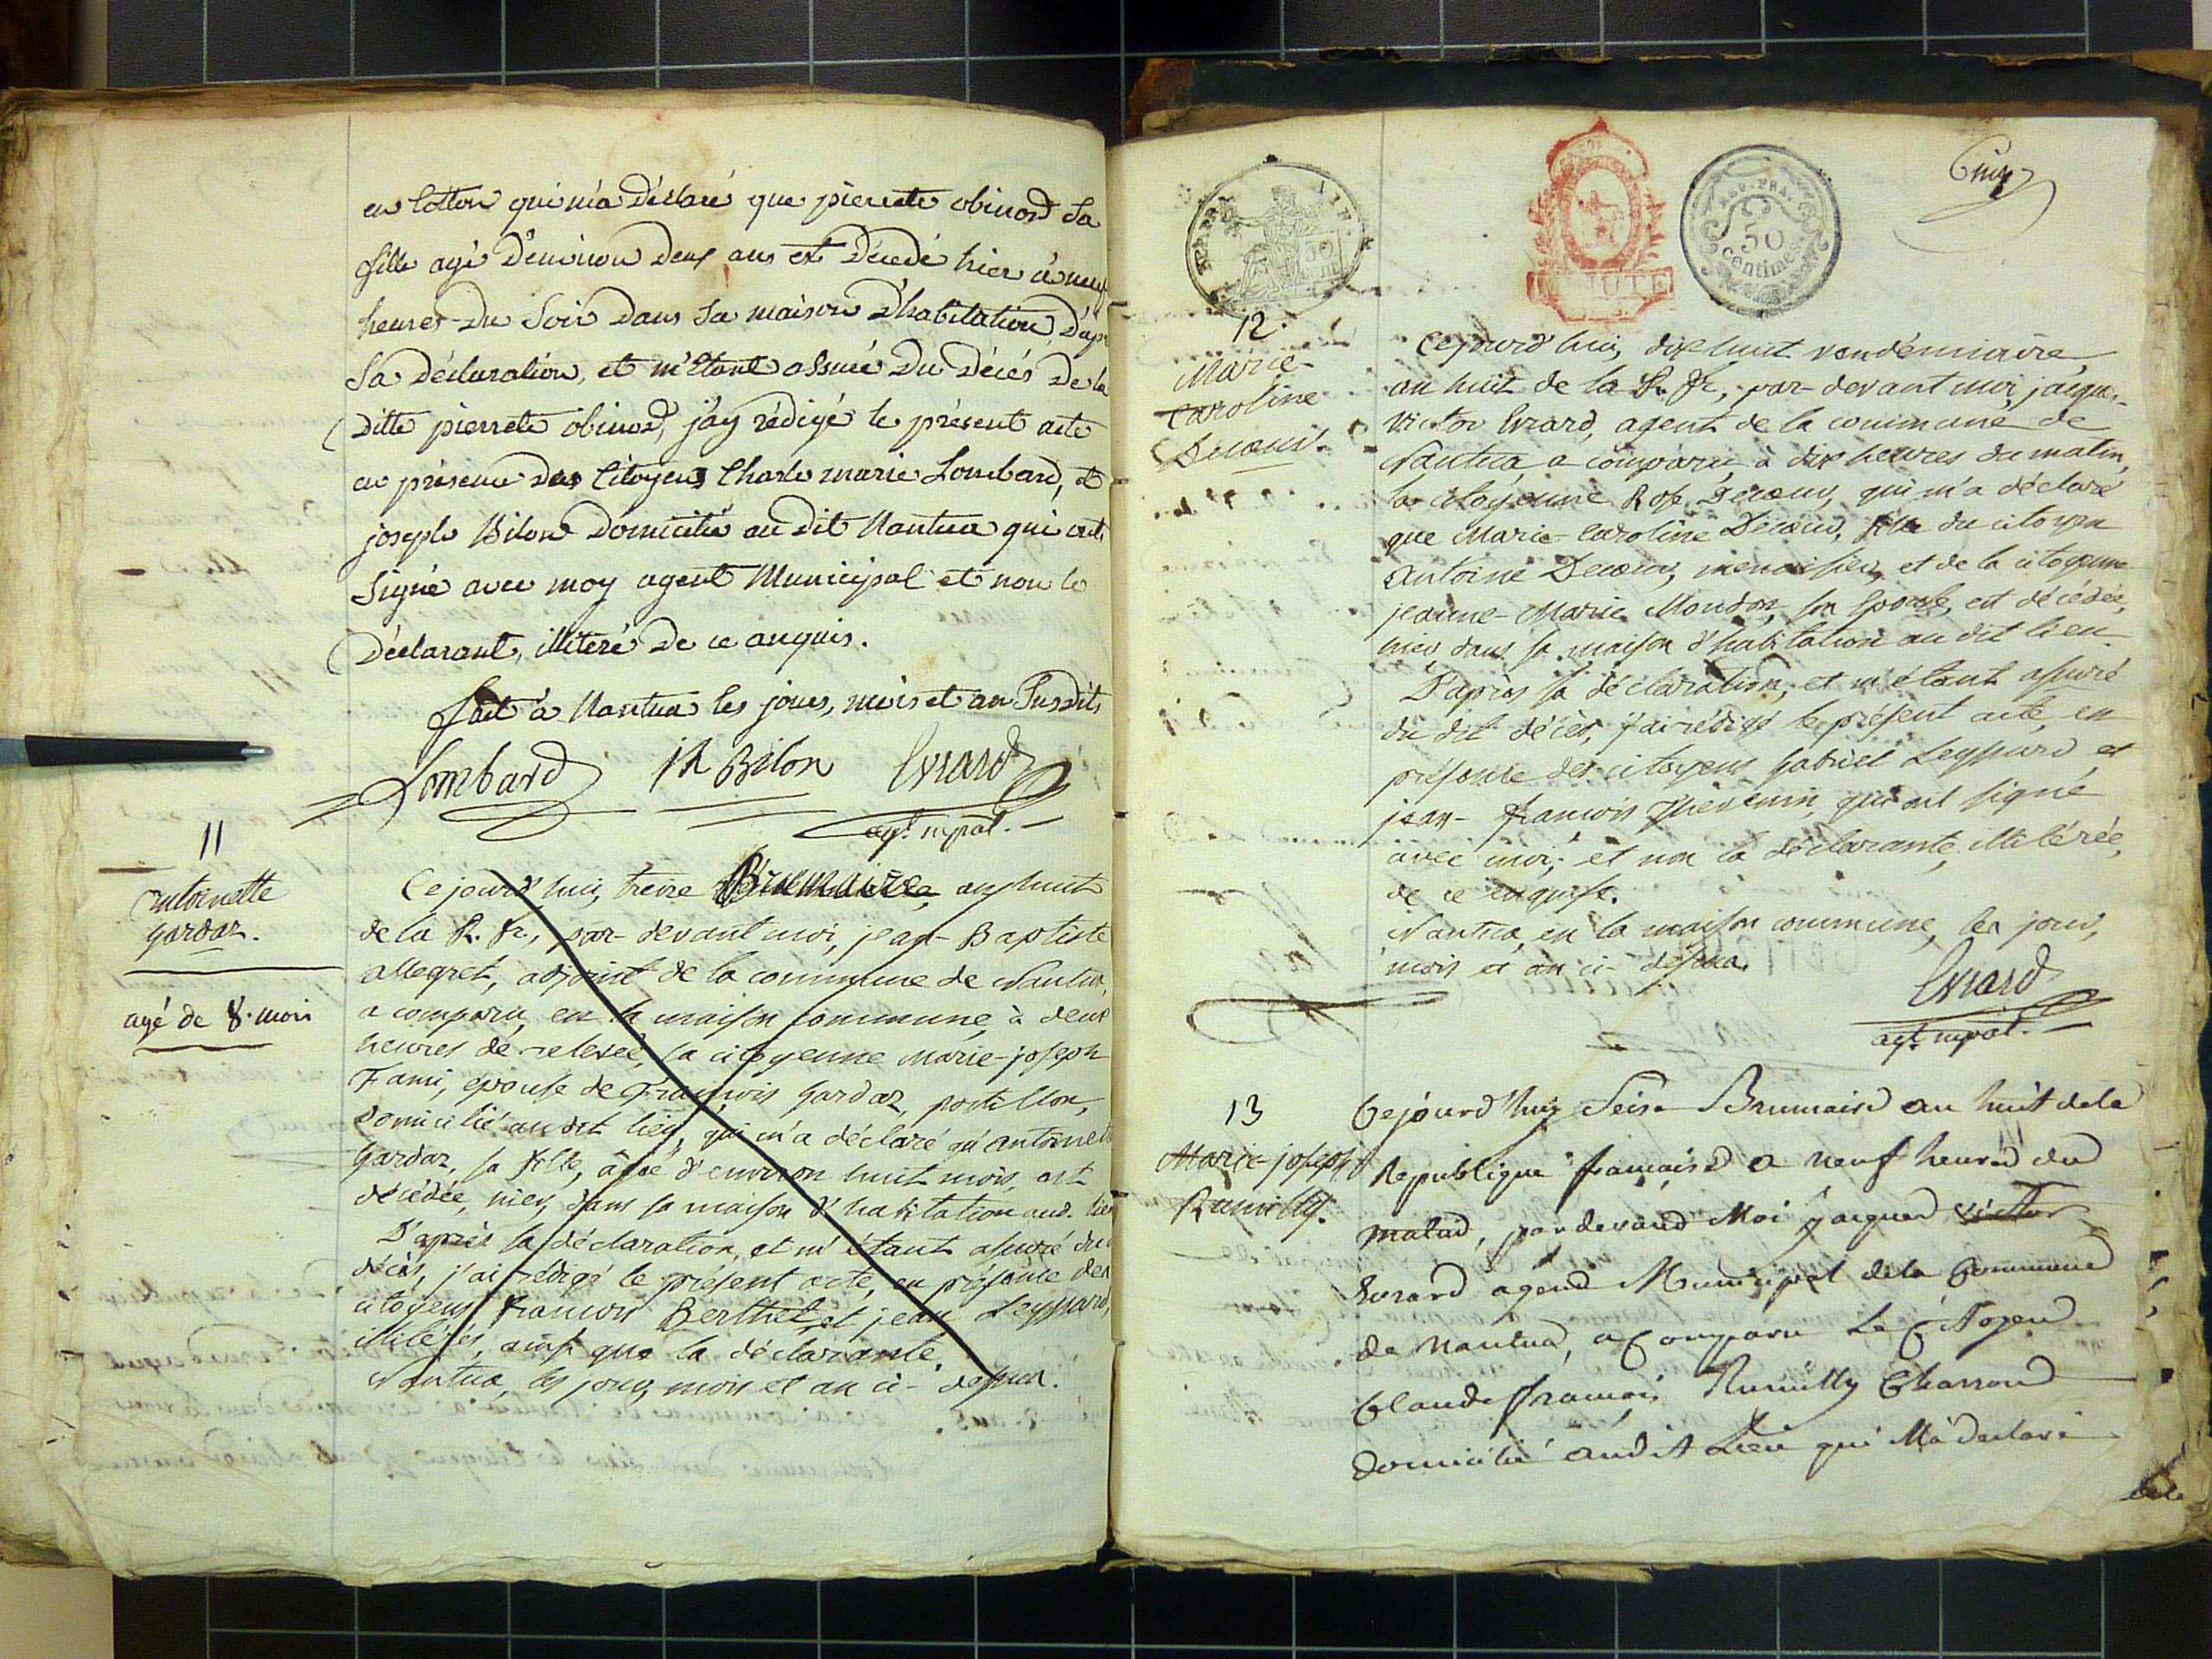 en Cotton qui m'a Déclaré que pierrete obinord Sa
fille agé D'environ Deux ans est Décedé hier à neuf
heures Du Soir Dans Sa maison D'habitation, D'apr
Sa Déclaration, et m'Etant assuré Du Décés De la
Ditte pierrete obinord, j'ay rédigé le présent acte
en présence des Citoyens Charle marie Lombard, et
joseph Bilon Domicilié au dit Nantua qui ont
Signé avec moy agent Municipal et non le
Déclarant, illiteré De ce anquis.
fait à Nantua les jours, mois et an Susdits
Lombard Bilon Evrard
agt. mpal.
11
antoinette
gardaz.
agé de 8. mois
Cejourd'hui, treize Brumaire, an huit
de la R. fr., par-devant moi, jean-Baptiste
allegret, adjoint de la commune de Nantua,
a comparu, en la maison commune, à deux
heures de relevée, la citoyenne Marie-joseph
Fami, épouse de François gardaz, postillon,
domicilié au dit lieu, qui m'a déclaré qu'antoinette
gardaz, sa fille, âgée d'environ huit mois, est
décédée, hier, dans sa maison d'habitation aud. lieu
D'après sa déclaration, et m'étant assuré du
décès, j'ai rédigé le présent acte, en présence des
citoyens françois Berthet, et jean Leyssard,
illitérés, ainsi que la déclarante.
Nantua, les jour, mois et an ci-dessus.
REP. FRA.
50
centimes
MINUTE
12.
Marie-
Caroline
Decœur.
Cejourd'hui, dix huit vendémiaire
an huit de la R. fr., par-devant moi, jaque-
Victor Evrard, agent de la commune de
Nantua a comparu à dix heures du matin,
la citoyenne Rose Decœur, qui m'a déclaré
que Marie-Caroline Decœur, fille du citoyen
antoine Decœur, menuisier, et de la citoyenne
jeanne-Marie Moudon, son épouse, est décédée,
hier dans sa maison d'habitation au dit lieu.
D'après sa déclaration, et m'étant assuré
du dit décès, j'ai rédigé le présent acte, en
présence des citoyens gabriel Leyssard et
jean-françois Thevenin, qui ont signé
avec moi, et non la déclarante, illitérée,
de ce enquise.
Nantua, en la maison commune, les jour,
mois et an ci-dessus.
Evrard
agt. mpal.
13
Marie-joseph
Rumilly.
Cejourd'huy Seise Brumaire an huit dela
Republique française a neuf heures du
matin, pardevand Moi jacques victor
Evrard agend Municipal dela Commune
de Nantua, a Comparu Le Citoyen
Claude françois Rumilly Charron
domicilié audit Lieu qui M'a declaré